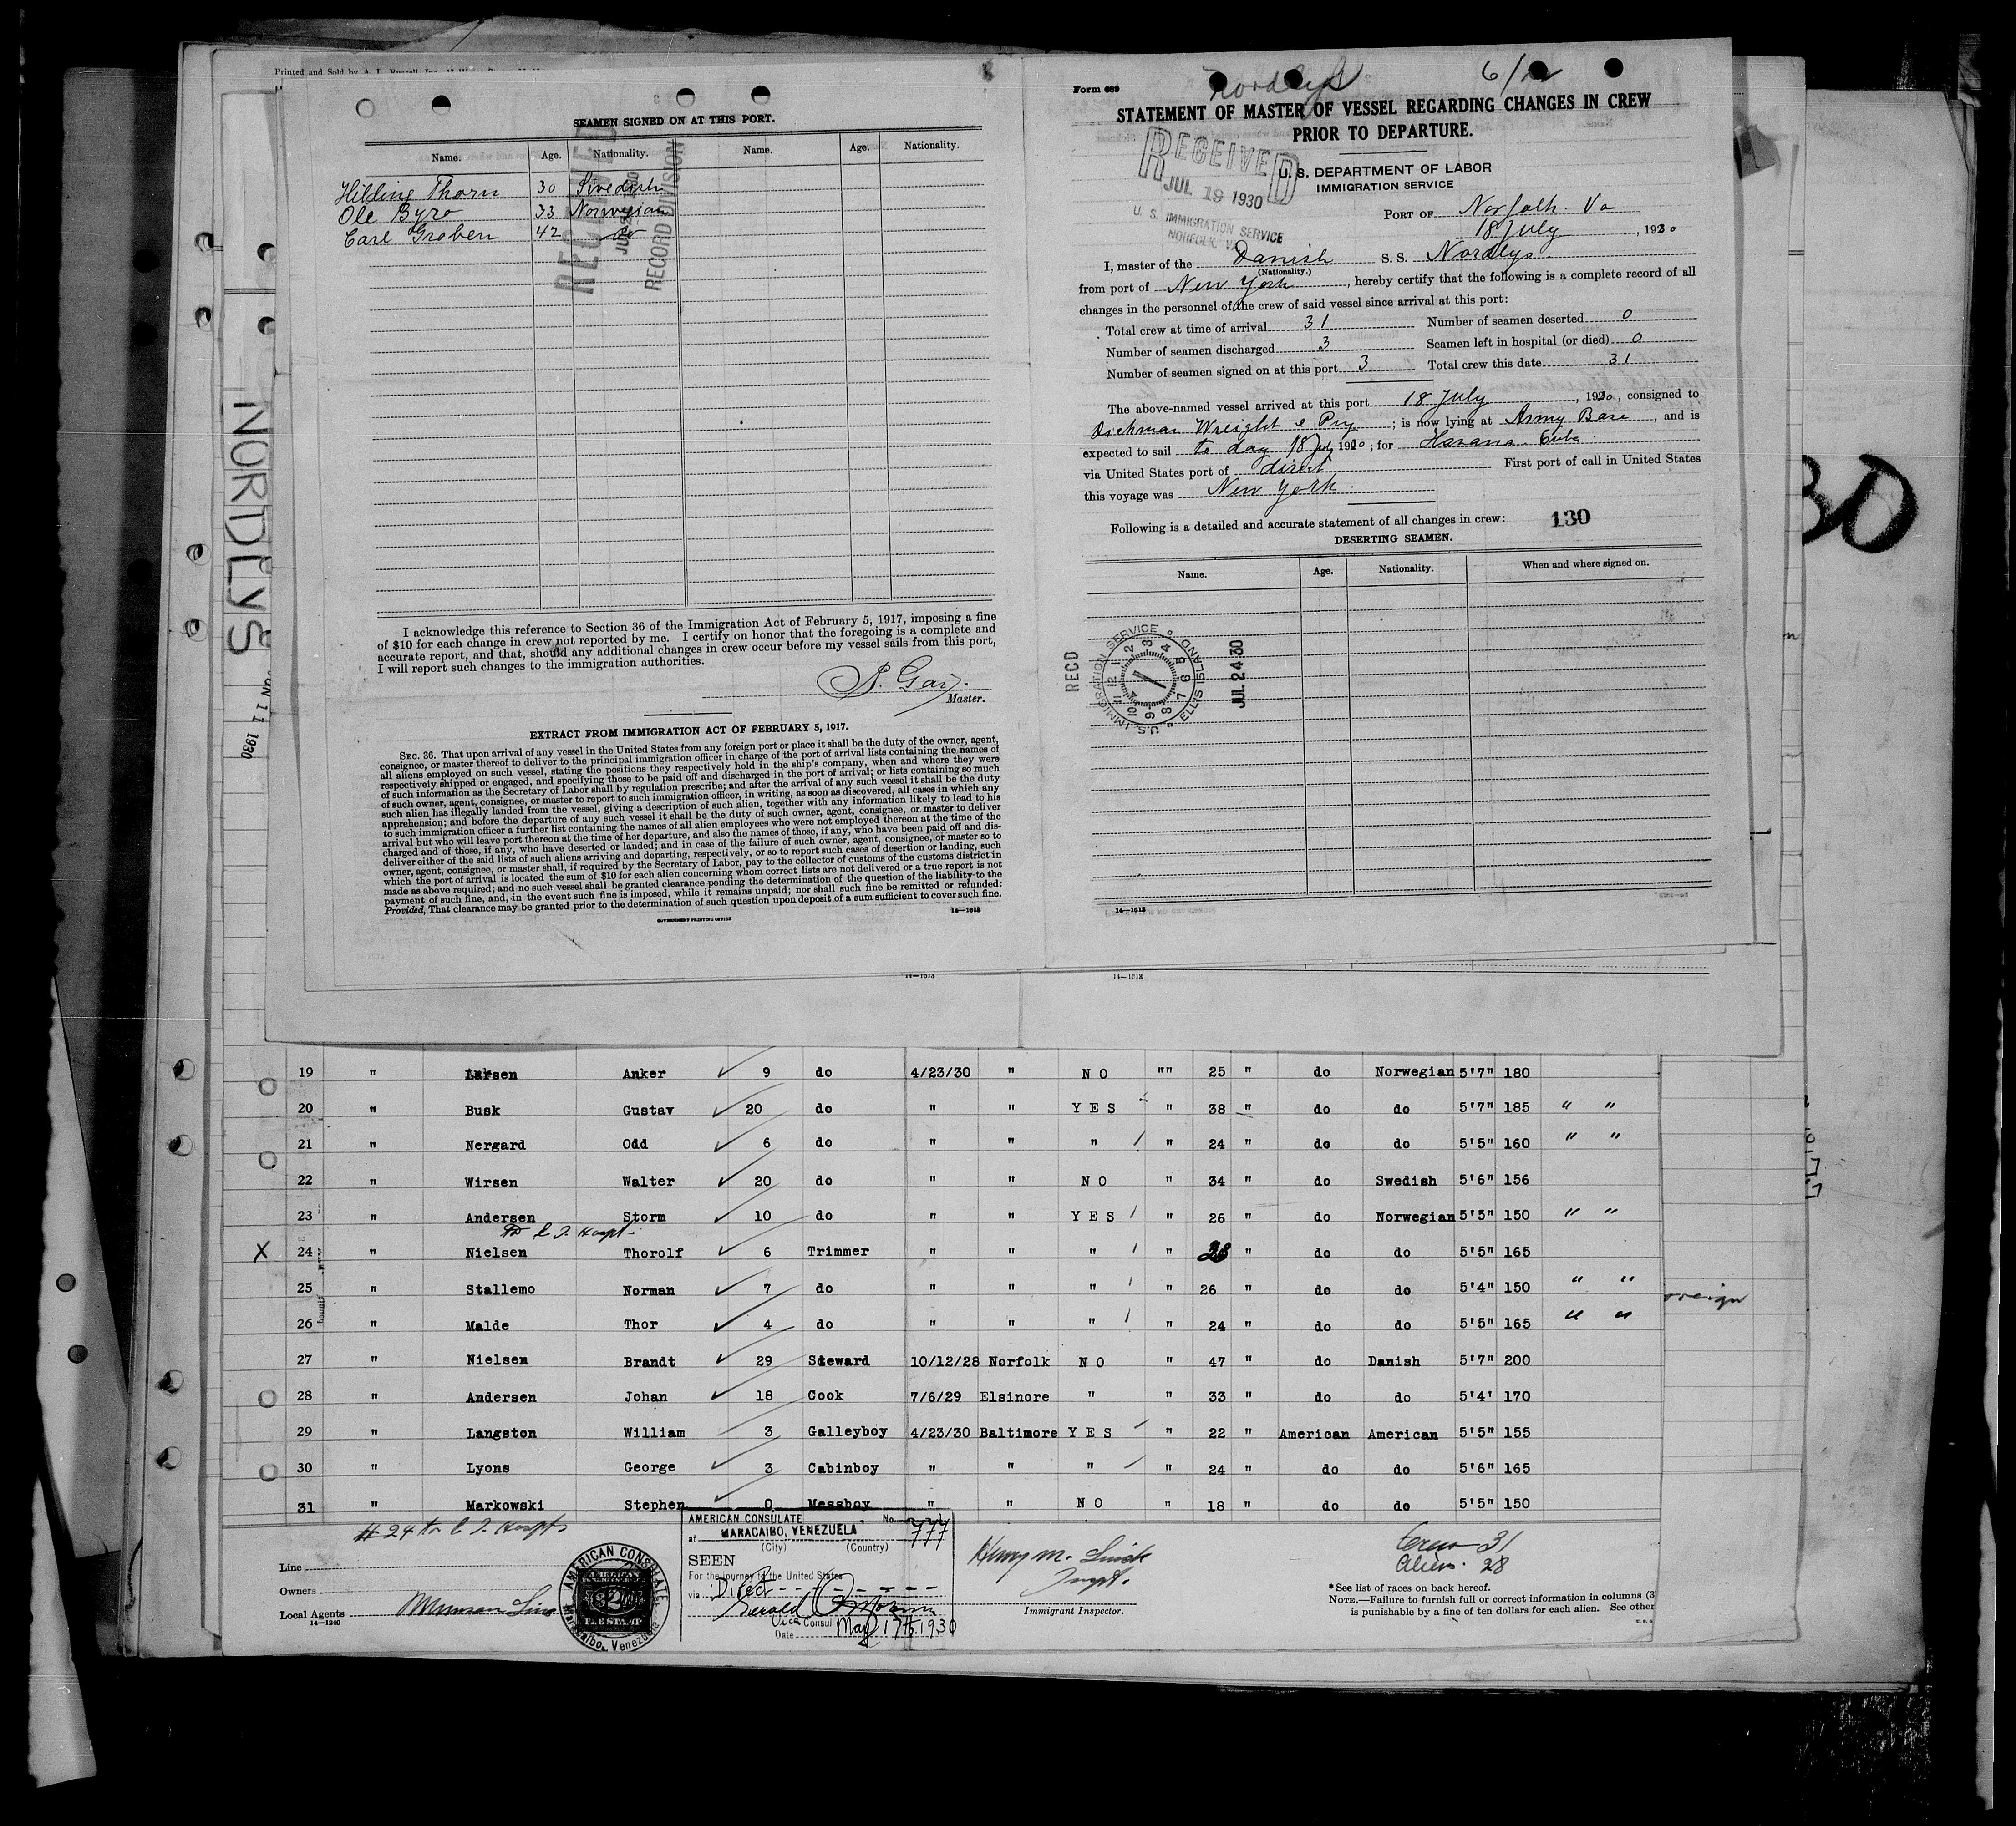 Printed and Sold by A. L. Russell, Inc.
SEAMEN SIGNED ON AT THIS PORT.
Name. Age. Nationality. Name. Age. Nationality.
Hilding Thorn 30 Swedish
Ole Byro 33 Norwegian
Carl Groben 42 do
RECEIVED
RECORD DIVISION
I acknowledge this reference to Section 36 of the Immigration Act of February 5, 1917, imposing a fine
of $10 for each change in crew not reported by me. I certify on honor that the foregoing is a complete and
accurate report, and that, should any additional changes in crew occur before my vessel sails from this port,
I will report such changes to the immigration authorities.
Master.
EXTRACT FROM IMMIGRATION ACT OF FEBRUARY 5, 1917.
SEC. 36. That upon arrival of any vessel in the United States from any foreign port or place it shall be the duty of the owner, agent,
consignee, or master thereof to deliver to the principal immigration officer in charge of the port of arrival lists containing the names of
all aliens employed on such vessel, stating the positions they respectively hold in the ship's company, when and where they were
respectively shipped or engaged, and specifying those to be paid off and discharged in the port of arrival; or lists containing so much
of such information as the Secretary of Labor shall by regulation prescribe; and after the arrival of any such vessel it shall be the duty
of such owner, agent, consignee, or master to report to such immigration officer, in writing, as soon as discovered, all cases in which any
such alien has illegally landed from the vessel, giving a description of such alien, together with any information likely to lead to his
apprehension; and before the departure of any such vessel it shall be the duty of such owner, agent, consignee, or master to deliver
to such immigration officer a further list containing the names of all alien employees who were not employed thereon at the time of the
arrival but who will leave port thereon at the time of her departure, and also the names of those, if any, who have been paid off and dis-
charged and of those, if any, who have deserted or landed; and in case of the failure of such owner, agent, consignee, or master so to
deliver either of the said lists of such aliens arriving and departing, respectively, or so to report such cases of desertion or landing, such
owner, agent, consignee, or master shall, if required by the Secretary of Labor, pay to the collector of customs of the customs district in
which the port of arrival is located the sum of $10 for each alien concerning whom correct lists are not delivered or a true report is not
made as above required; and no such vessel shall be granted clearance pending the determination of the question of the liability to the
payment of such fine, and, in the event such fine is imposed, while it remains unpaid; nor shall such fine be remitted or refunded:
Provided, That clearance may be granted prior to the determination of such question upon deposit of a sum sufficient to cover such fine.
GOVERNMENT PRINTING OFFICE 14—1613
Form 689
Nordlys
STATEMENT OF MASTER OF VESSEL REGARDING CHANGES IN CREW
PRIOR TO DEPARTURE.
RECEIVED
JUL 19 1930
U. S. IMMIGRATION SERVICE
NORFOLK, VA.
U. S. DEPARTMENT OF LABOR
IMMIGRATION SERVICE
PORT OF Norfolk. Va
18 July, 1930
I, master of the Danish S. S. Nordlys
(Nationality.)
from port of New York, hereby certify that the following is a complete record of all
changes in the personnel of the crew of said vessel since arrival at this port:
Total crew at time of arrival 31 Number of seamen deserted 0
Number of seamen discharged 3 Seamen left in hospital (or died) 0
Number of seamen signed on at this port 3 Total crew this date 31
The above-named vessel arrived at this port 18 July, 1930, consigned to
Dichman Wright & Pug; is now lying at Army Base, and is
expected to sail to day 18 July 1930; for Havana Cuba
via United States port of direct First port of call in United States
this voyage was New York
Following is a detailed and accurate statement of all changes in crew: 130
DESERTING SEAMEN.
Name. Age. Nationality. When and where signed on.
RECD
U.S. IMMIGRATION SERVICE ELLIS ISLAND
JUL 24 30
14—1613
14—1613 14—1613
NORDLYS
JUN 11 1930
30
19 " Larsen Anker 9 do 4/23/30 " NO "" 25 " do Norwegian 5'7" 180
20 " Busk Gustav 20 do " " YES " 38 " do do 5'7" 185 " "
21 " Nergard Odd 6 do " " " " 24 " do do 5'5" 160 " "
22 " Wirsen Walter 20 do " " NO " 34 " do Swedish 5'6" 156
23 " Andersen Storm 10 do " " YES " 26 " do Norwegian 5'5" 150 " "
X 24 " Nielsen Thorolf 6 Trimmer " " " " 28 " do do 5'5" 165
25 " Stallemo Norman 7 do " " " " 26 " do do 5'4" 150 " "
26 " Malde Thor 4 do " " " " 24 " do do 5'5" 165 " "
27 " Nielsen Brandt 29 Steward 10/12/28 Norfolk NO " 47 " do Danish 5'7" 200
28 " Andersen Johan 18 Cook 7/6/29 Elsinore " " 33 " do do 5'4' 170
29 " Langston William 3 Galleyboy 4/23/30 Baltimore YES " 22 " American American 5'5" 155
30 " Lyons George 3 Cabinboy " " " " 24 " do do 5'6" 165
31 " Markowski Stephen 0 Messboy " " NO " 18 " do do 5'5" 150
Line
Owners
Local Agents Munson Line
14—1240
AMERICAN CONSULATE
Maracaibo, Venezuela
AMERICAN CONSULATE No. 777
at MARACAIBO, VENEZUELA
(City) (Country)
SEEN
For the journey to the United States
via Direct
Vice Consul
Date May 17th. 1930
Immigrant Inspector.
Crew 31
Aliens 28
*See list of races on back hereof.
NOTE.—Failure to furnish full or correct information in columns (3
is punishable by a fine of ten dollars for each alien. See other